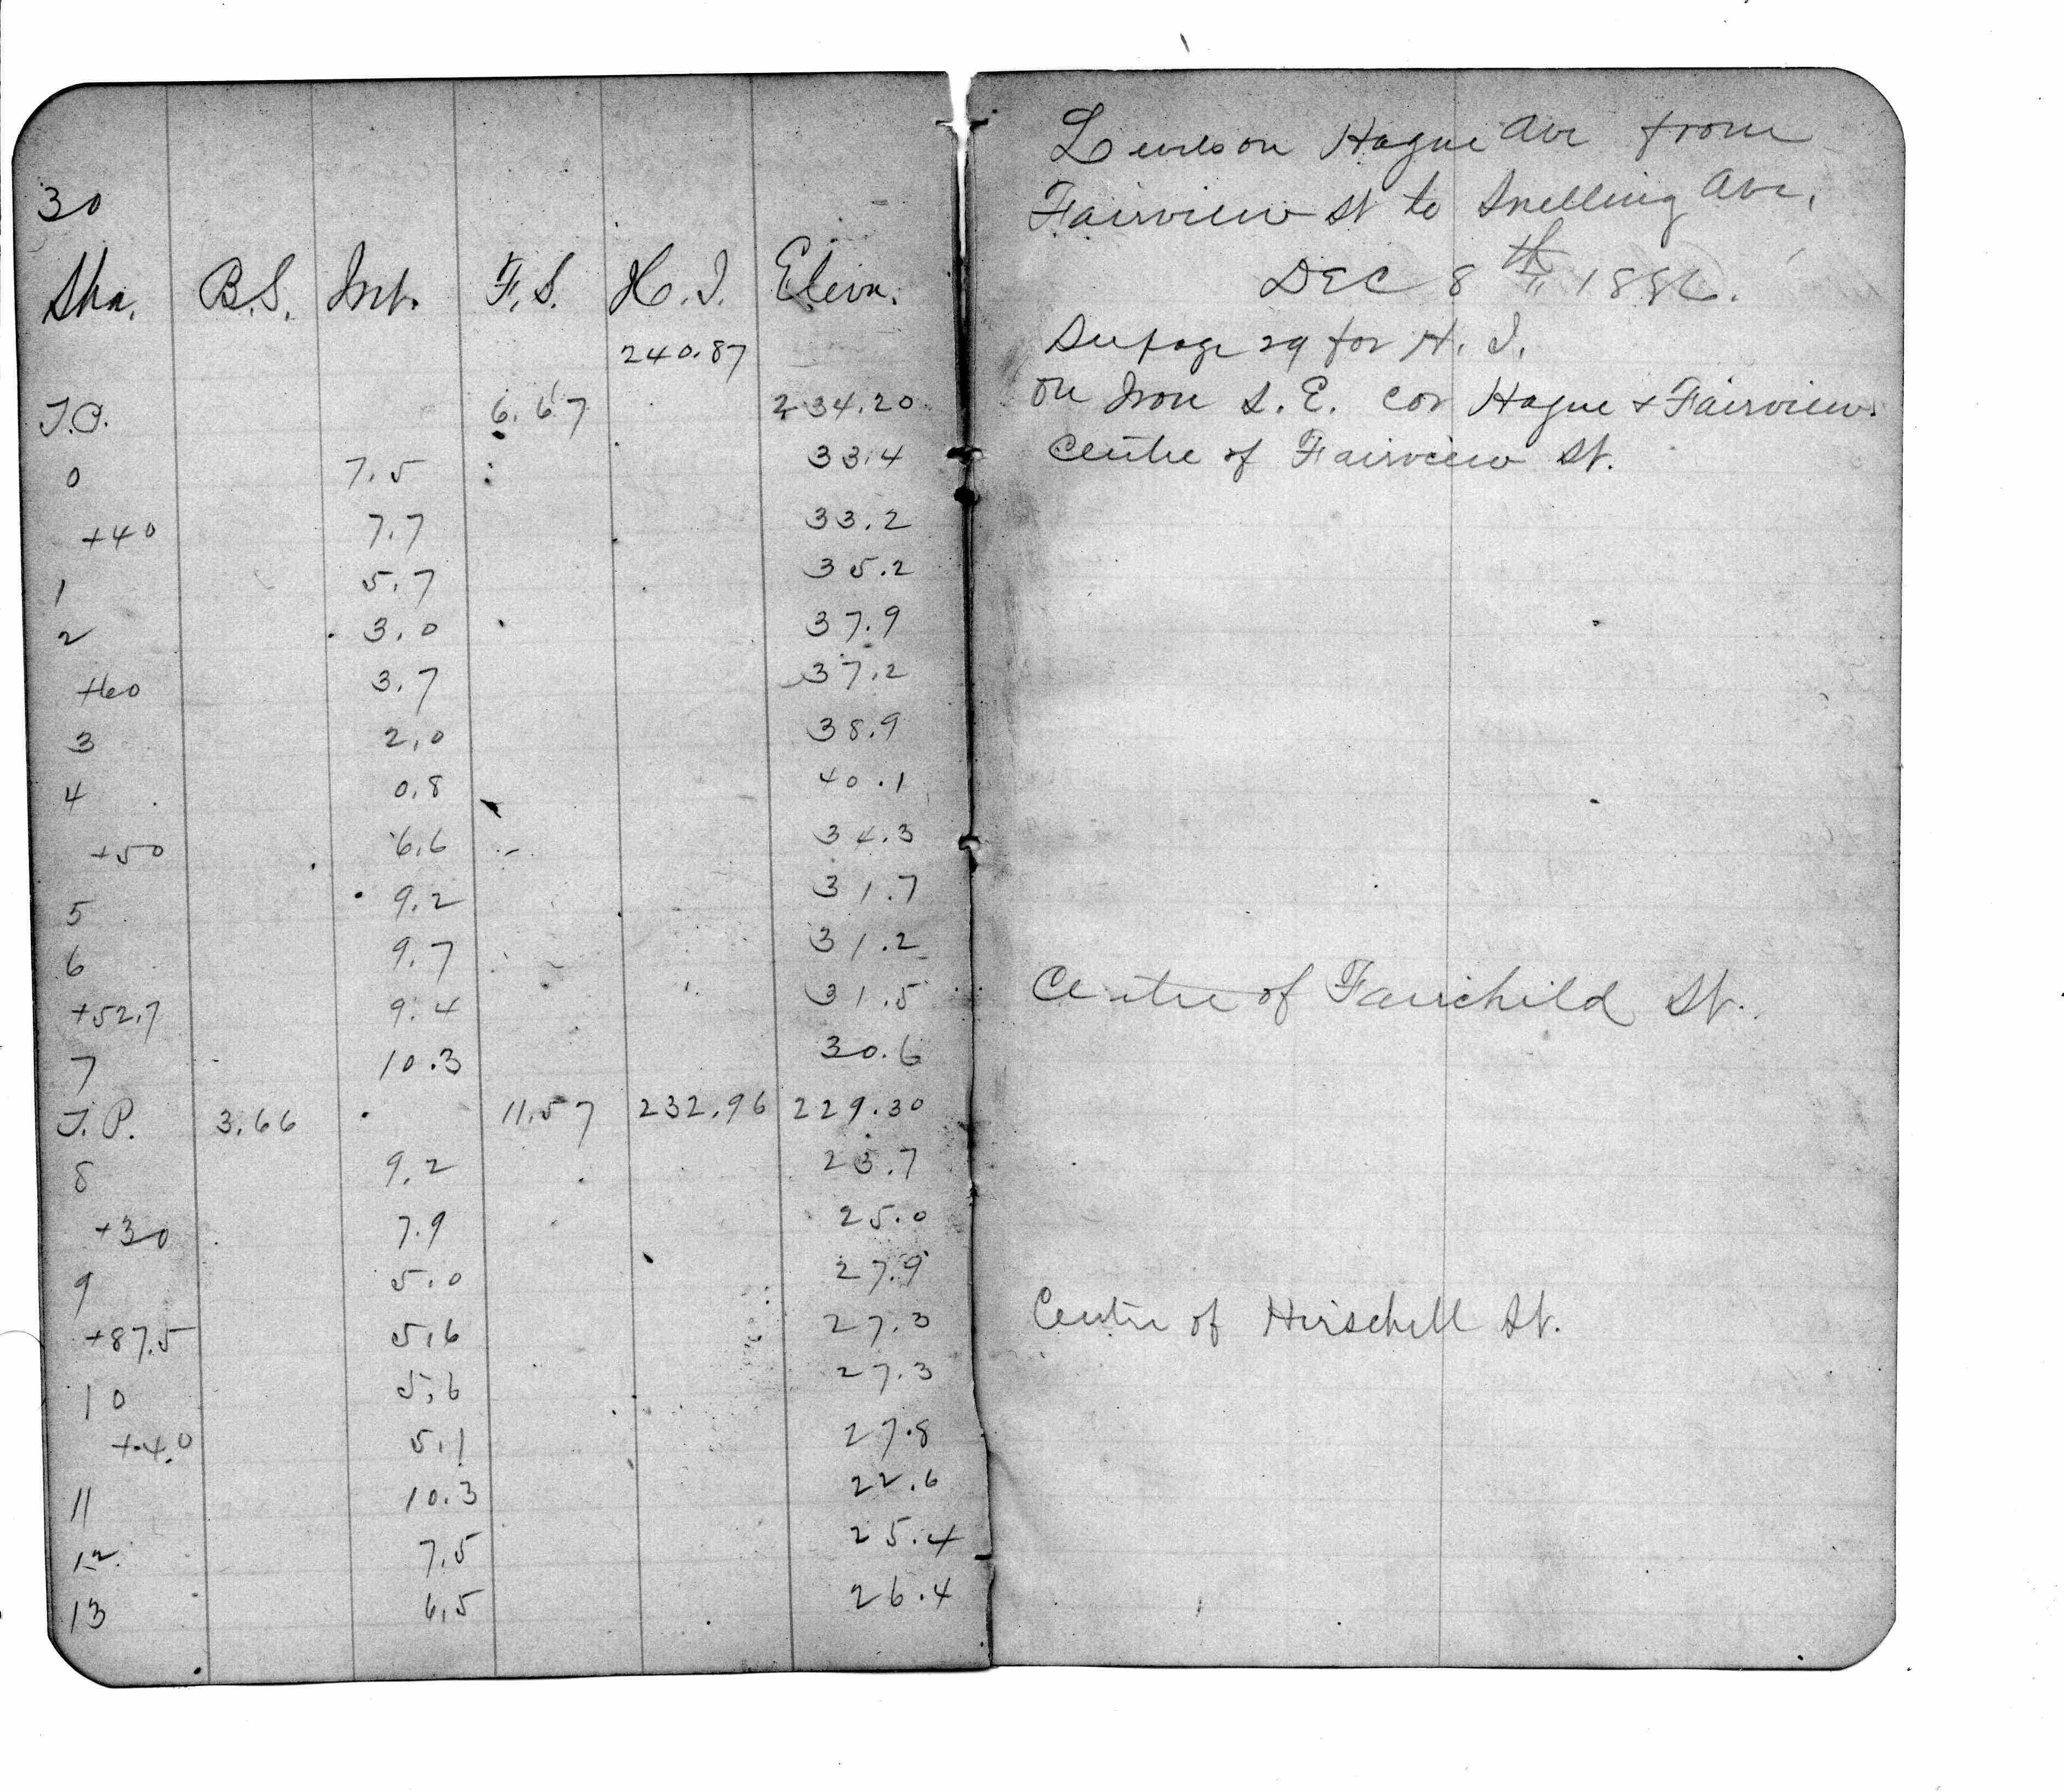 30
Sta. B.S. Int. F.S. H.I. Elevn.
240.87
T.P. 6.67 234.20
0 7.5 33.4
+40 7.7 33.2
1 5.7 35.2
2 3.0 37.9
+60 3.7 37.2
3 2.0 38.9
4 0.8 40.1
+50 6.6 34.3
5 9.2 31.7
6 9.7 31.2
+52.7 9.4 31.5
7 10.3 30.6
T.P. 3.66 11.57 232.96 229.30
8 9.2 23.7
+30 7.9 25.0
9 5.0 27.9
+87.5 5.6 27.3
10 5.6 27.3
+40 5.1 27.8
11 10.3 22.6
12 7.5 25.4
13 6.5 26.4
Levels on Hague Ave from
Fairview St to Snelling Ave.
DEC 8th 1886.
See page 29 for H.I.
on Iron S.E. cor Hague + Fairview.
Centre of Fairview St.
Centre of Fairchild St.
Centre of Herschell St.